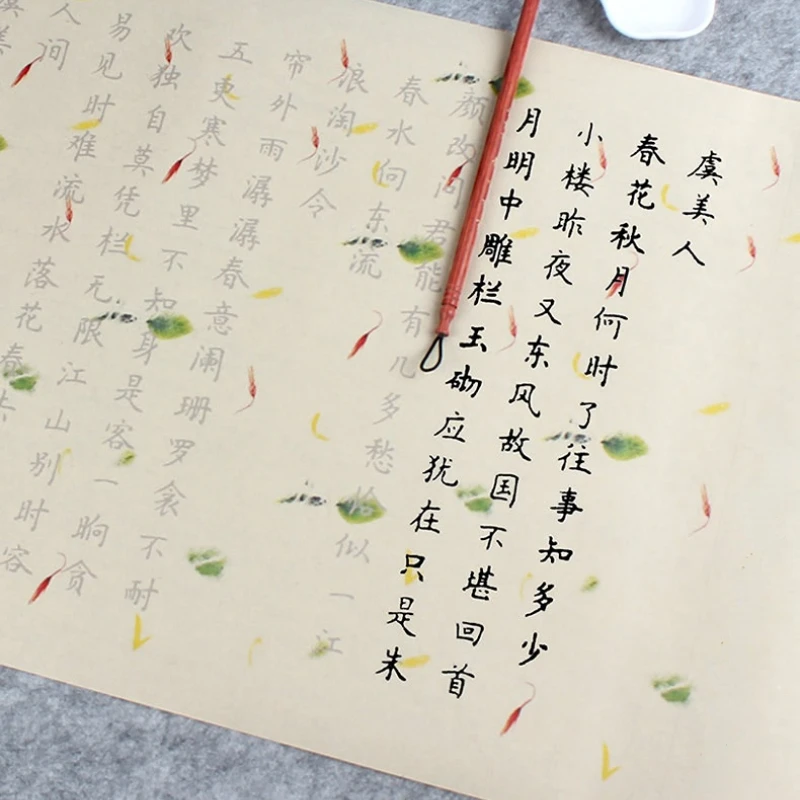 虞美人
春花秋月何时了往事知多少
小楼昨夜又东风故国不堪回首
月明中雕栏玉砌应犹在只是朱
颜改问君能有几多愁恰似一江
春水向东流
浪淘沙令
帘外雨潺潺春意阑珊罗衾不耐
五更寒梦里不知身是客一晌贪
欢独自莫凭栏无限江山别时容
易见时难流水落花春去
人间
虞美